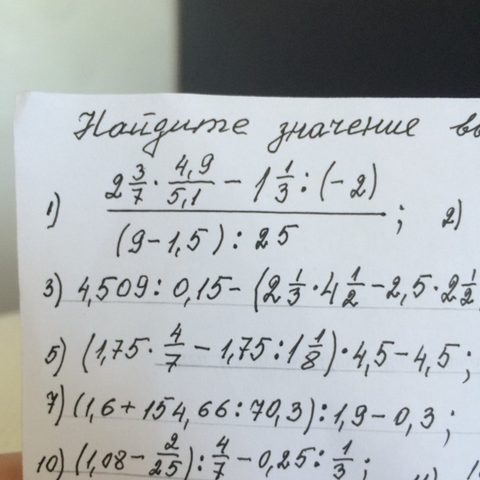 Найдите значение
1) (2 3/7 · 4,9/5,1 − 1 1/3 : (−2)) / ((9−1,5) : 25) ; 2)
3) 4,509 : 0,15 − (2 1/3 · 4 1/2 − 2,5 · 2 1/2
5) (1,75 · 4/7 − 1,75 : 1 1/8) · 4,5 − 4,5 ;
7) (1,6 + 154,66 : 70,3) : 1,9 − 0,3 ;
10) (1,08 − 2/25) : 4/7 − 0,25 : 1/3 ;